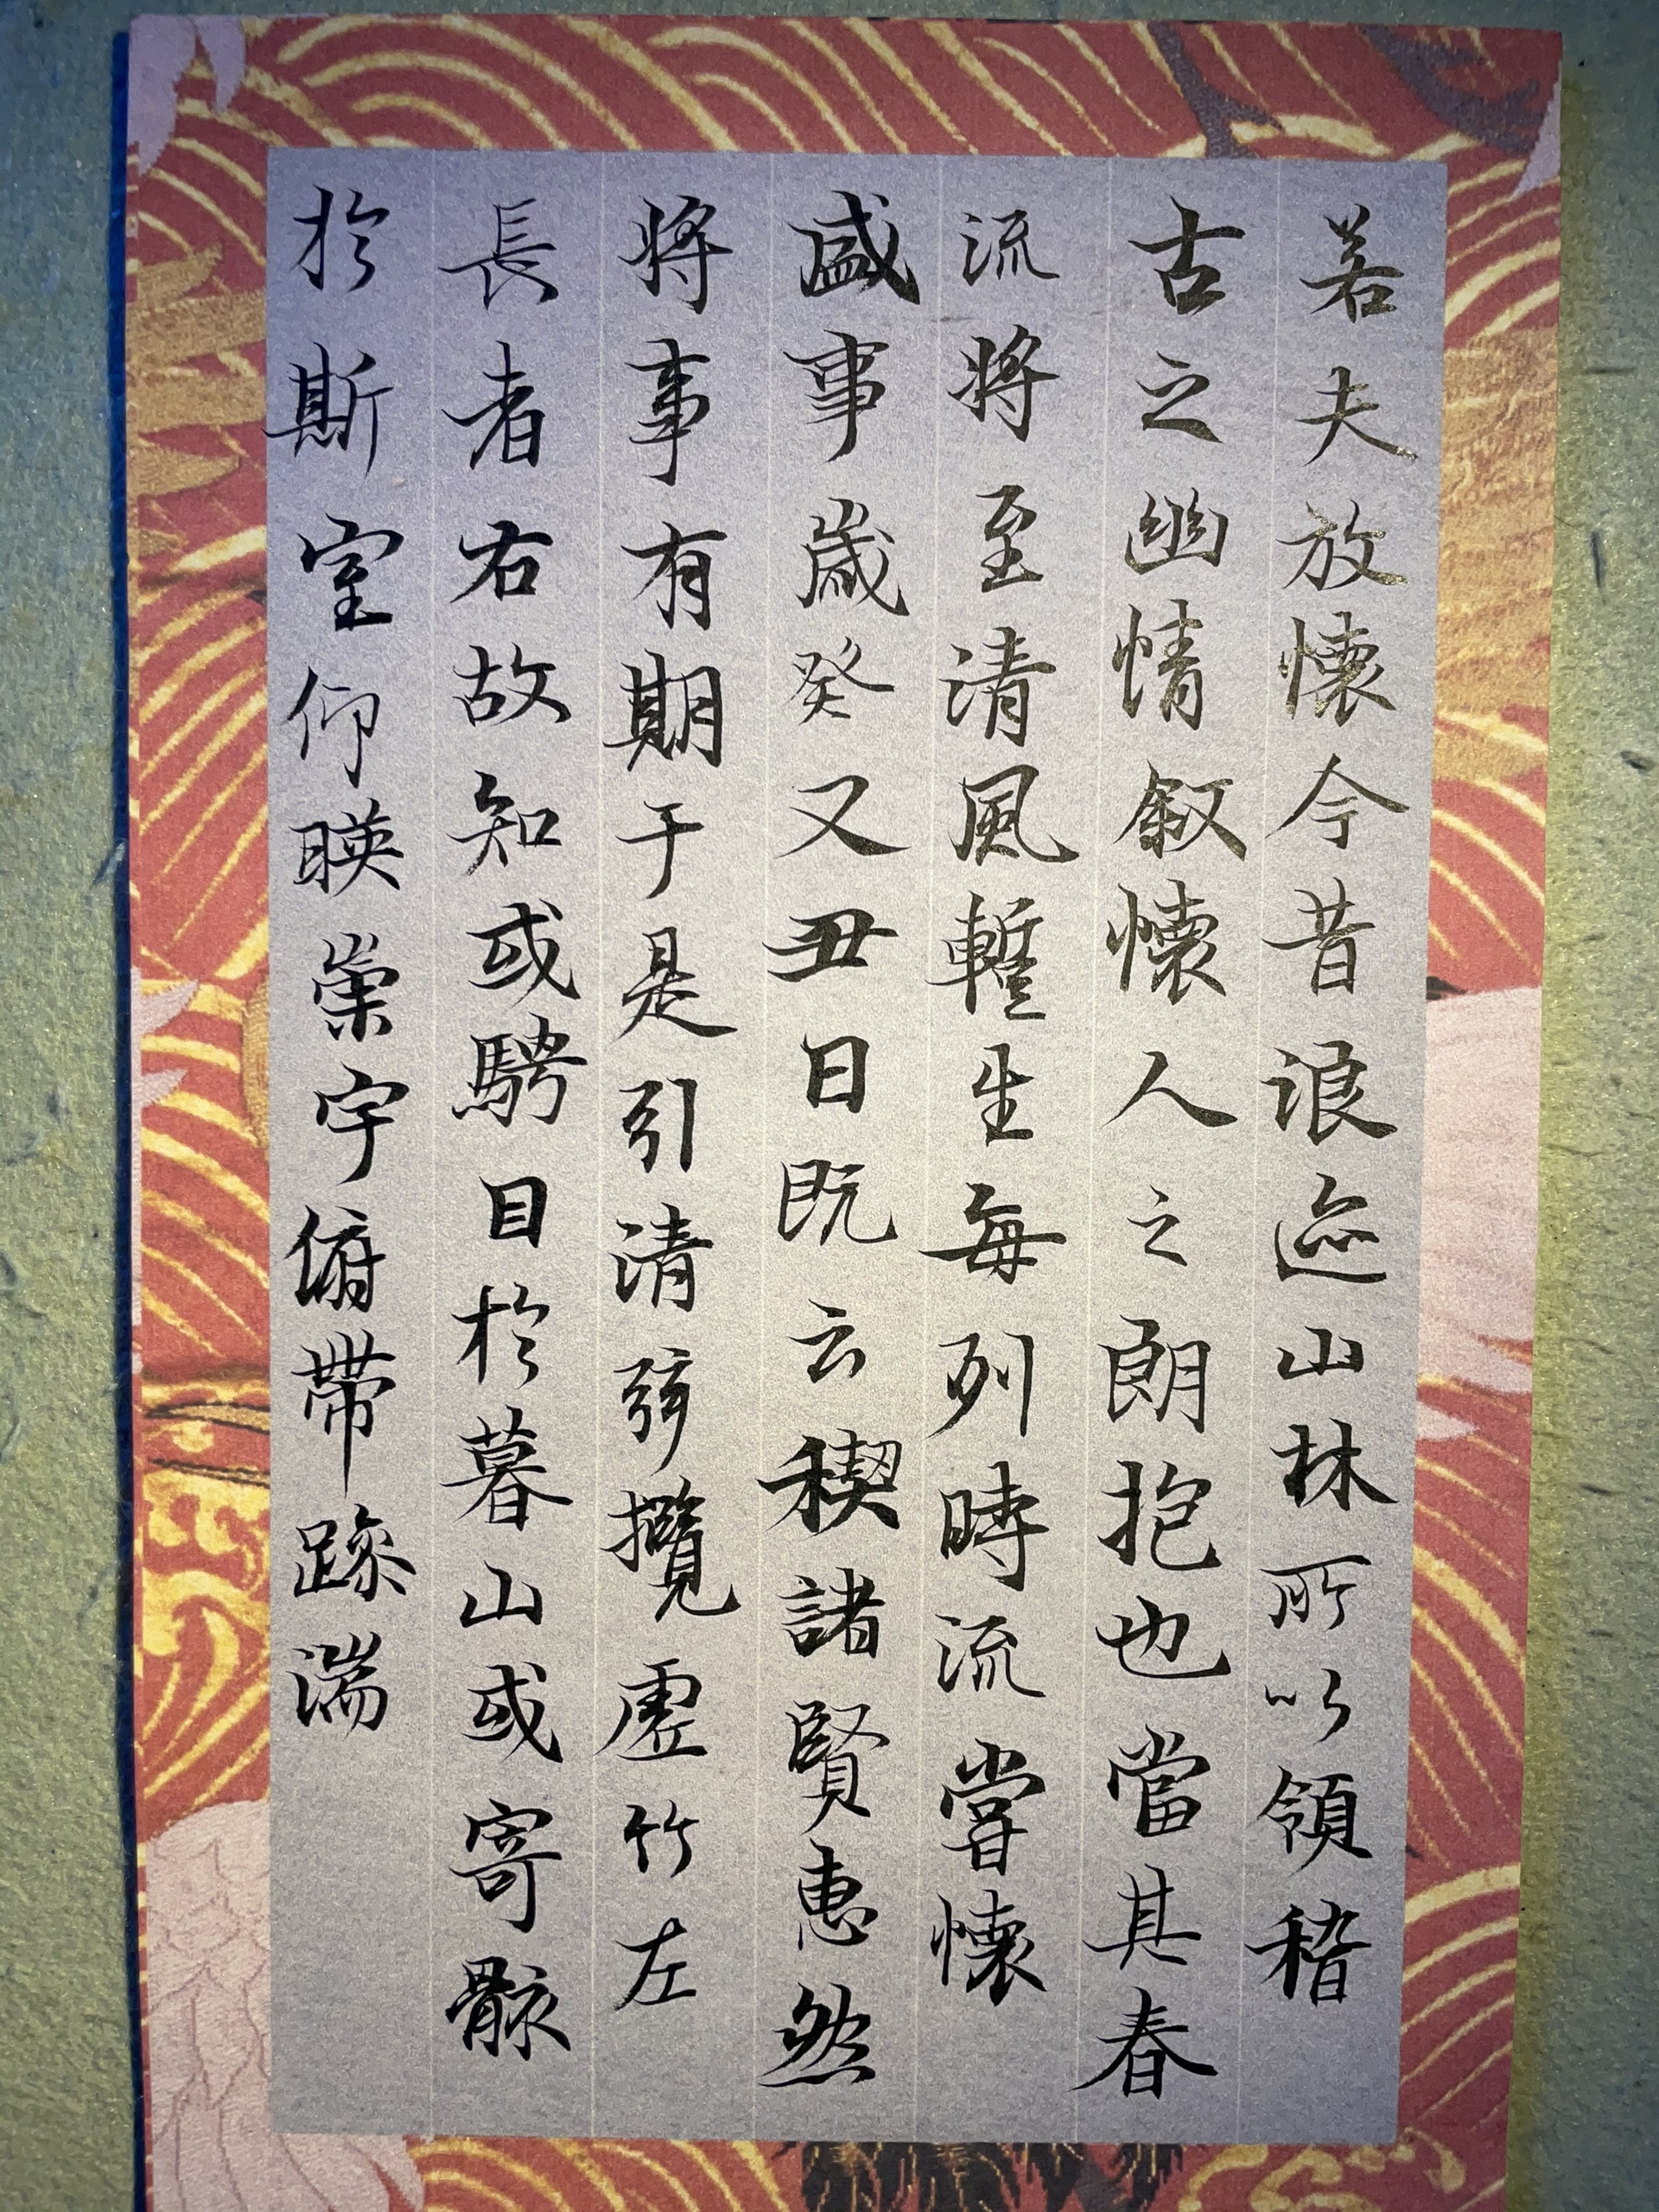 若夫放懷今昔浪迹山林所以領稽
古之幽情叙懷人之朗抱也當其春
流將至清風暫生每列時流嘗懷
盛事歲癸又丑日既云稧諸賢惠然
將事有期于是引清弦攬虛竹左
長者右故知或騁目於暮山或寄骸
於斯室仰暎崇宇俯帶疎湍